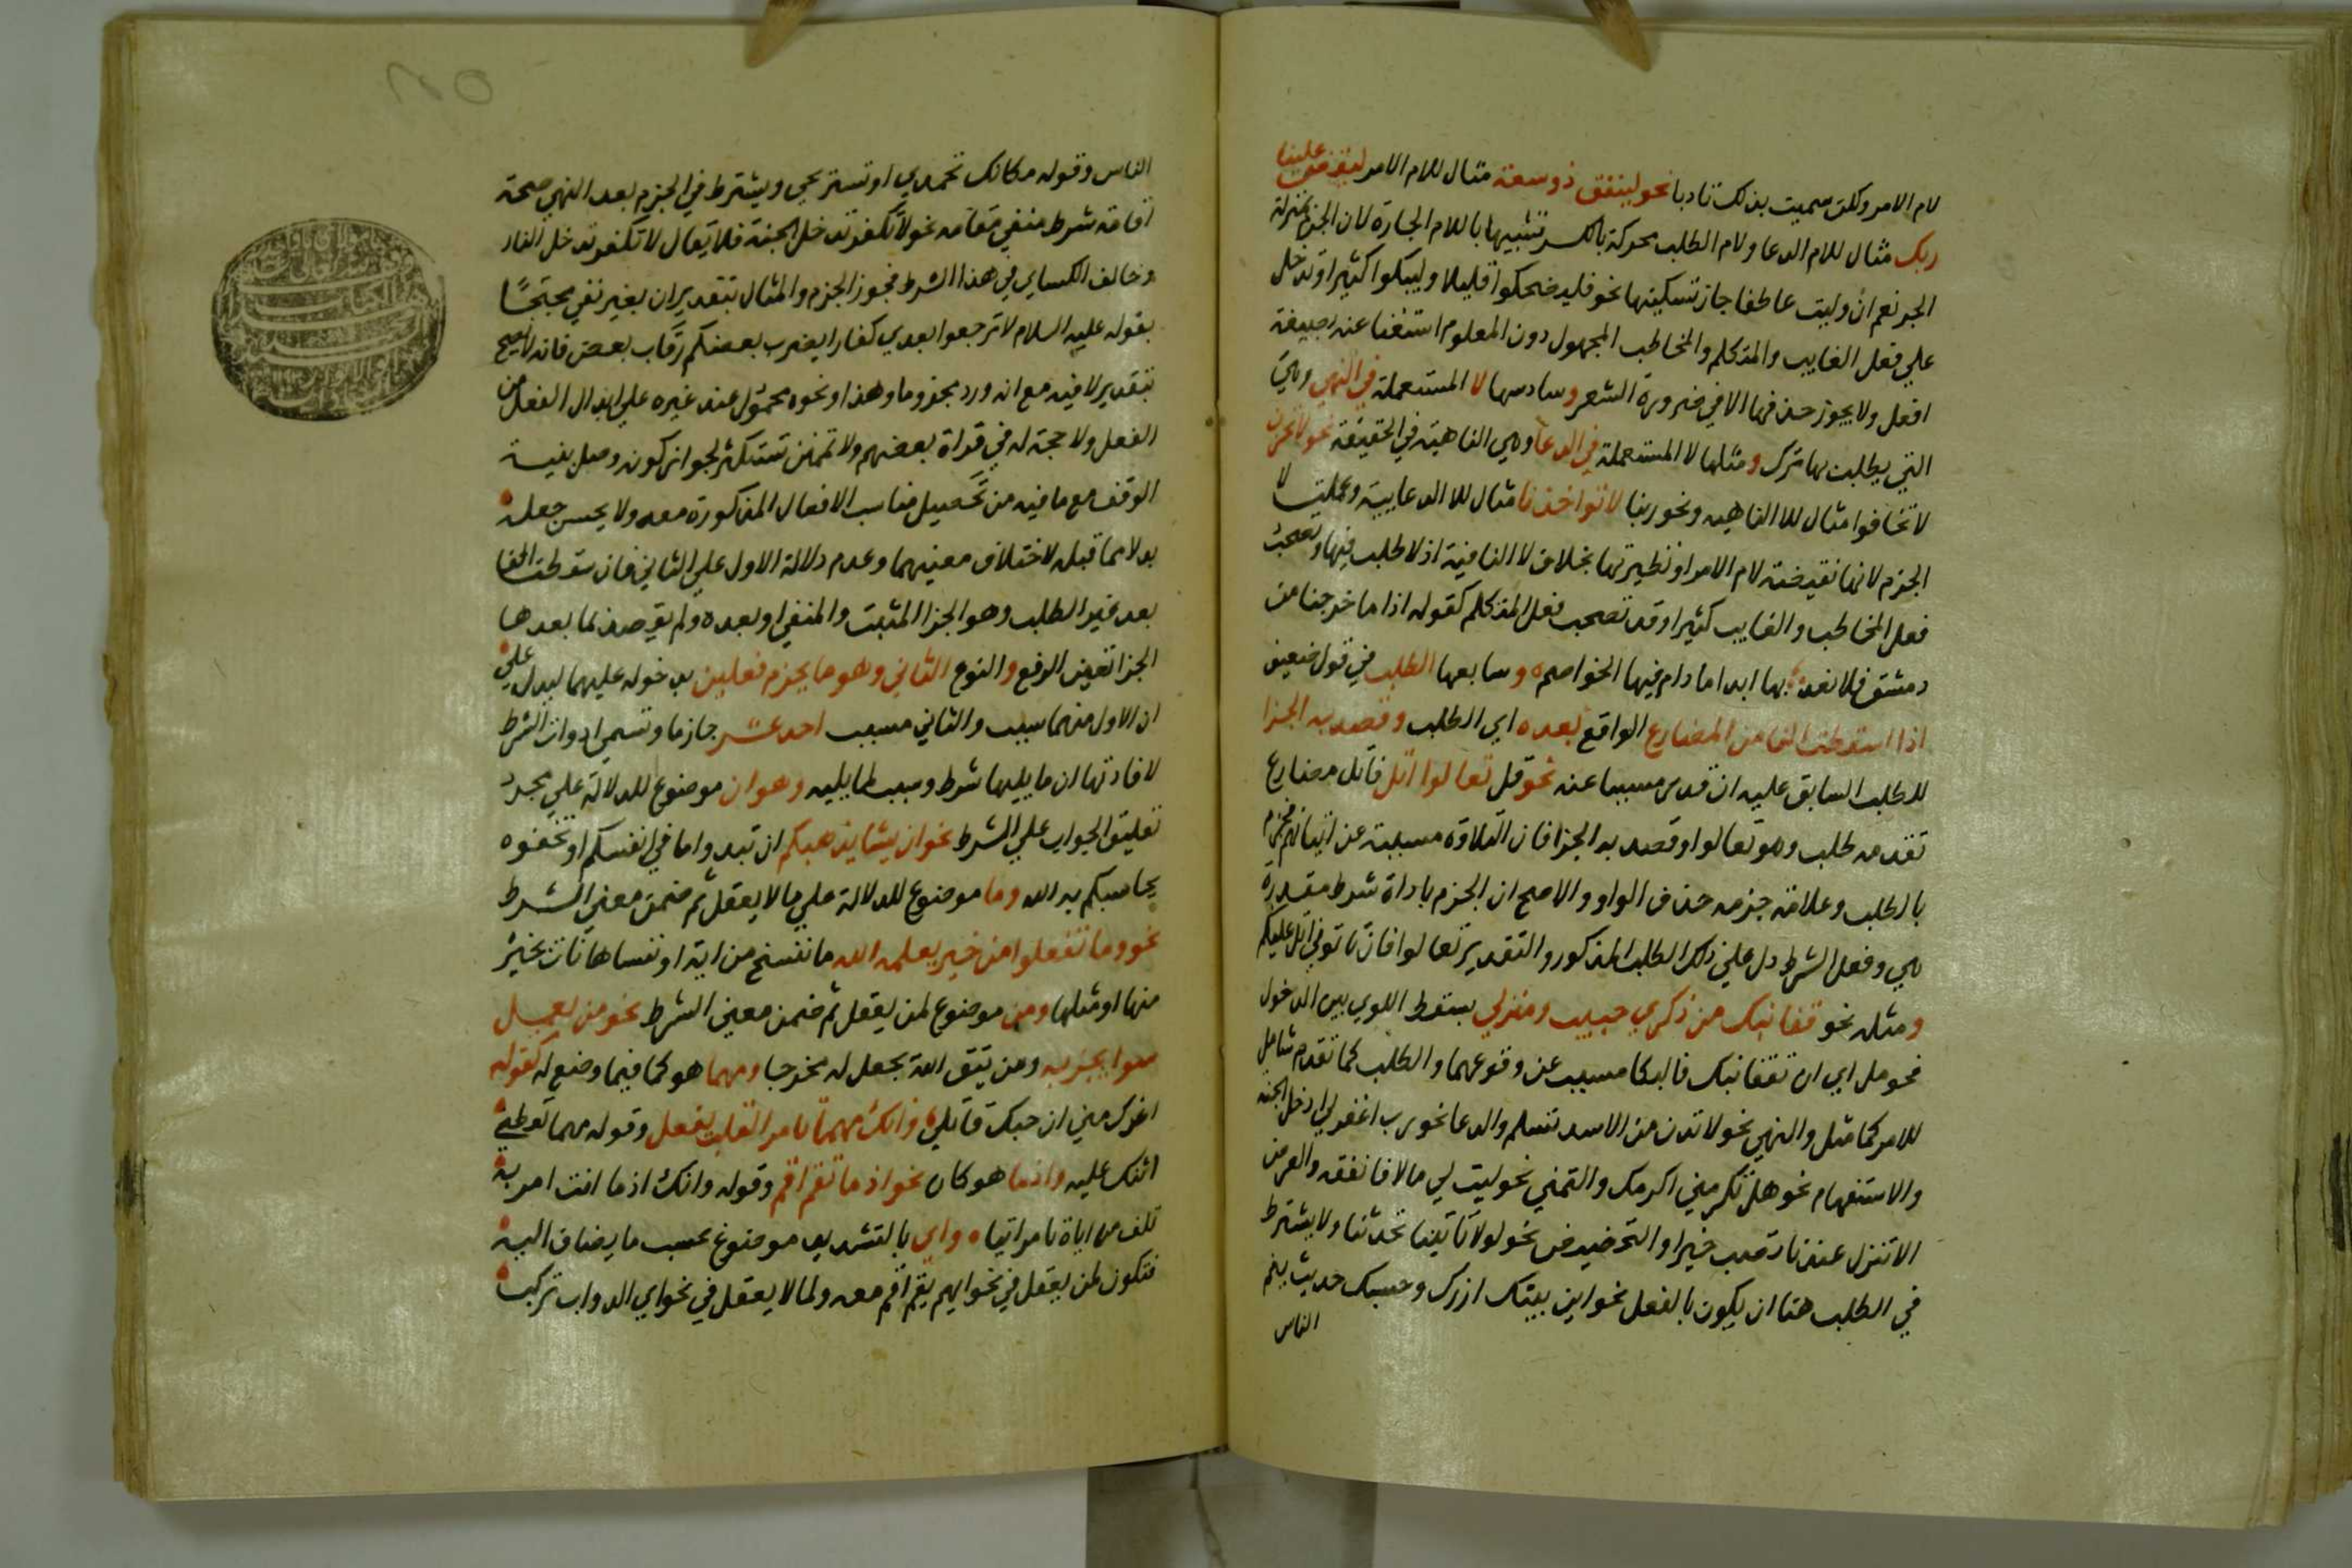 لام الامر ولكن سميت بذلك تادبا نحو لينفق ذو سعة مثال للام الامر ليقض علينا
ربك مثال للام الدعا ولام الطلب محركة بالكسر تشبيها باللام الجارة لان الجزم بمنزلة
الجر نعم ان وليت عاطفا جاز تسكينها نحو فليضحكوا قليلا وليبكوا كثيرا وتدخل
علي فعل الغايب والمتكلم والمخاطب المجهول دون المعلوم استغنا عنه بصيغة
افعل ولا يجوز حذفها الا في ضرورة الشعر وسادسها لا المستعملة في النهي وهي
التي يطلب بها ترك ومثلها لا المستعملة في الدعا وهي الناهية في الحقيقة نحو لا تحزن
لا تخافوا مثال للا الناهية ونحو ربنا لا تواخذنا مثال للا الدعاييية وعملت لا
الجزم لانها نقيضة لام الامر او نظيرتها بخلاف لا النافية اذ لا طلب فيها وتصحب
فعل المخاطب والغايب كثيرا وقد تصحب فعل المتكلم كقوله اذا ما خرجنا من
دمشق فلا نعد بها ابدا ما دام فيها الجراضم وسابعها الطلب في قول ضعيف
اذا اسقطت الفا من المضارع الواقع بعده اي الطلب وقصد به الجزا
للطلب السابق عليه ان قدر مسببا عنه نحو قل تعالوا اتل فاتل مضارع
تقدمه طلب وهو تعالوا وقصد به الجزا فان التلاوة مسببة عن اتيانهم فجزم
بالطلب وعلامة جزمه حذف الواو والاصح ان الجزم باداة شرط مقدرة
هي وفعل الشرط دل علي ذلك الطلب المذكور والتقدير تعالوا فان تاتوني اتل عليكم
ومثله نحو قفا نبك من ذكري حبيب ومنزلي بسقط اللوي بين الدخول
فحومل اي ان تقفا نبك فالبكا مسبب عن وقوعهما والطلب كما تقدم شامل
للامر كما مثل والنهي نحو لا تدن من الاسد تسلم والدعا نحو رب اغفر لي ادخل الجنة
والاستفهام نحو هل تكرمني اكرمك والتمني نحو ليت لي مالا فانفقه والعرض
الا تنزل عندنا تصب خيرا والتحضيض نحو لولا تاتينا تحدثنا ولا يشترط
في الطلب هنا ان يكون بالفعل نحو اين بيتك ازرك وحسبك حديث ينم
الناس
الناس وقوله مكانك تحمدي او تستريحي ويشترط في الجزم بعد النهي صحة
اقامة شرط منفي مقامه نحو لا تكفر تدخل الجنة فلا يقال لا تكفر تدخل النار
وخالف الكسايي في هذا الشرط فجوز الجزم والمثال بتقدير ان بغير نفي محتجًا
بقوله عليه السلام لا ترجعوا بعدي كفارا يضرب بعضكم رقاب بعض فانه لا يصح
بتقدير لا فيه مع انه ورد مجزوما وهذا ونحوه محمول عند غيره علي ابدال الفعل من
الفعل ولا حجة له في قراة بعضهم ولا تمنن تستكثر لجواز كونه وصل بنية
الوقف مع ما فيه من تحصيل مناسب الافعال المذكورة معه ولا يحسن جعله
بدلا مما قبله لاختلاف معنيهما وعدم دلالة الاول علي الثاني فان سقطت الفا
بعد غير الطلب وهو الجزا المثبت والمنفي او بعده ولم يقصد بما بعدها
الجزا تعين الرفع والنوع الثاني وهو ما يجزم فعلين بدخوله عليهما ليدل علي
ان الاول منهما سبب والثاني مسبب احد عشر جازما وتسمي ادوات الشرط
لافادتها ان ما يليها شرط وسبب لما يليه وهو ان موضوع للدلالة علي مجرد
تعليق الجواب علي الشرط نحو ان يشا يذهبكم ان تبدوا ما في انفسكم او تخفوه
يحاسبكم به الله وما موضوع للدلالة علي ما لا يعقل ثم ضمن معني الشرط
نحو وما تفعلوا من خير يعلمه الله ما ننسخ من اية او ننساها نات بخير
منها او مثلها ومن موضوع لمن يعقل ثم ضمن معني الشرط نحو من يعمل
سوا يجز به ومن يتق الله يجعل له مخرجا ومهما هو كما فيما وضع له كقوله
اغرك مني ان حبك قاتلي وانك مهما تامر القلب يفعل وقوله مهما تعطني
اثنك عليه واذما هو كان نحو اذ ما تقم اقم وقوله وانك اذما انت امر به
تلف من اياه تامر اتيا واي بالتشديد موضوع بحسب ما يضاف اليه
فتكون لمن يعقل في نحو ايهم يقم اقم معه ولما لا يعقل في نحو اي الدواب تركب